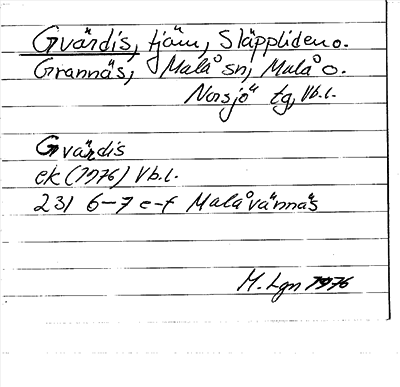 Gvärdis, tjäm, Släppliden o.
Grannäs, Malå sn, Malå o.
Norsjö tg, Vb.l.
Gvärdis
ek (1976) Vb.l.
231 6-7 e-f Malåvännäs
M. Lgn 1976